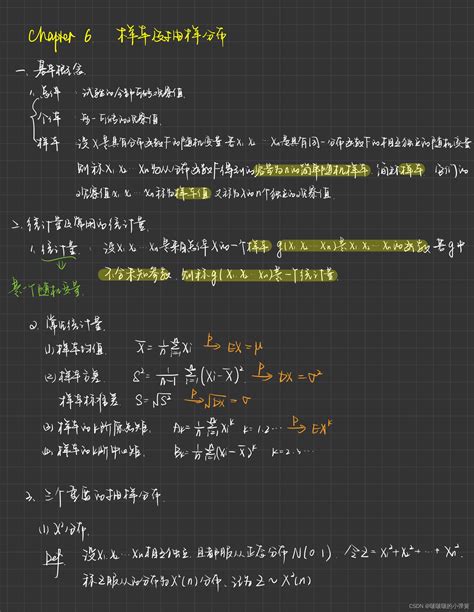 Chapter 6. 样本及抽样分布
一. 基本概念
1. 总体: 试验的全部可能观察值.
个体: 每一可能的观察值.
样本: 设X是具有分布函数F的随机变量 若X₁ X₂ … Xₙ是具有同一分布函数F的相互独立的随机变量
则称X₁ X₂ … Xₙ为从分布函数F得到的容量为n的简单随机样本 简称样本 它们的
观察值x₁ x₂ … xₙ称为样本值 又称为X的n个独立的观察值
二. 统计量及常用的统计量
1. 统计量: 设X₁ X₂ … Xₙ是来自总体X的一个样本 g(X₁ X₂ … Xₙ)是X₁ X₂ … Xₙ的函数 若g中
是一个随机变量 不含未知参数 则称g(X₁ X₂ … Xₙ)是一个统计量
2. 常用统计量
(1) 样本均值 X̄ = 1/n Σᵢ₌₁ⁿ Xᵢ →ᴾ EX = μ
(2) 样本方差 S² = 1/(n-1) Σᵢ₌₁ⁿ (Xᵢ - X̄)² →ᴾ DX = σ²
样本标准差 S = √S² →ᴾ √DX = σ
(3) 样本的k阶原点矩 Aₖ = 1/n Σᵢ₌₁ⁿ Xᵢᵏ k = 1.2… →ᴾ EXᵏ
(4) 样本的k阶中心矩 Bₖ = 1/n Σᵢ₌₁ⁿ (Xᵢ - X̄)ᵏ k = 2.3…
3. 三个重要的抽样分布
(1) X²分布
Def 设X₁ X₂ … Xₙ相互独立 且都服从正态分布N(0 1) 令Z = X₁² + X₂² + … + Xₙ².
称Z服从的分布为X²(n)分布. 记为Z ~ X²(n)
CSDN @啵啵啵的小饼蛋